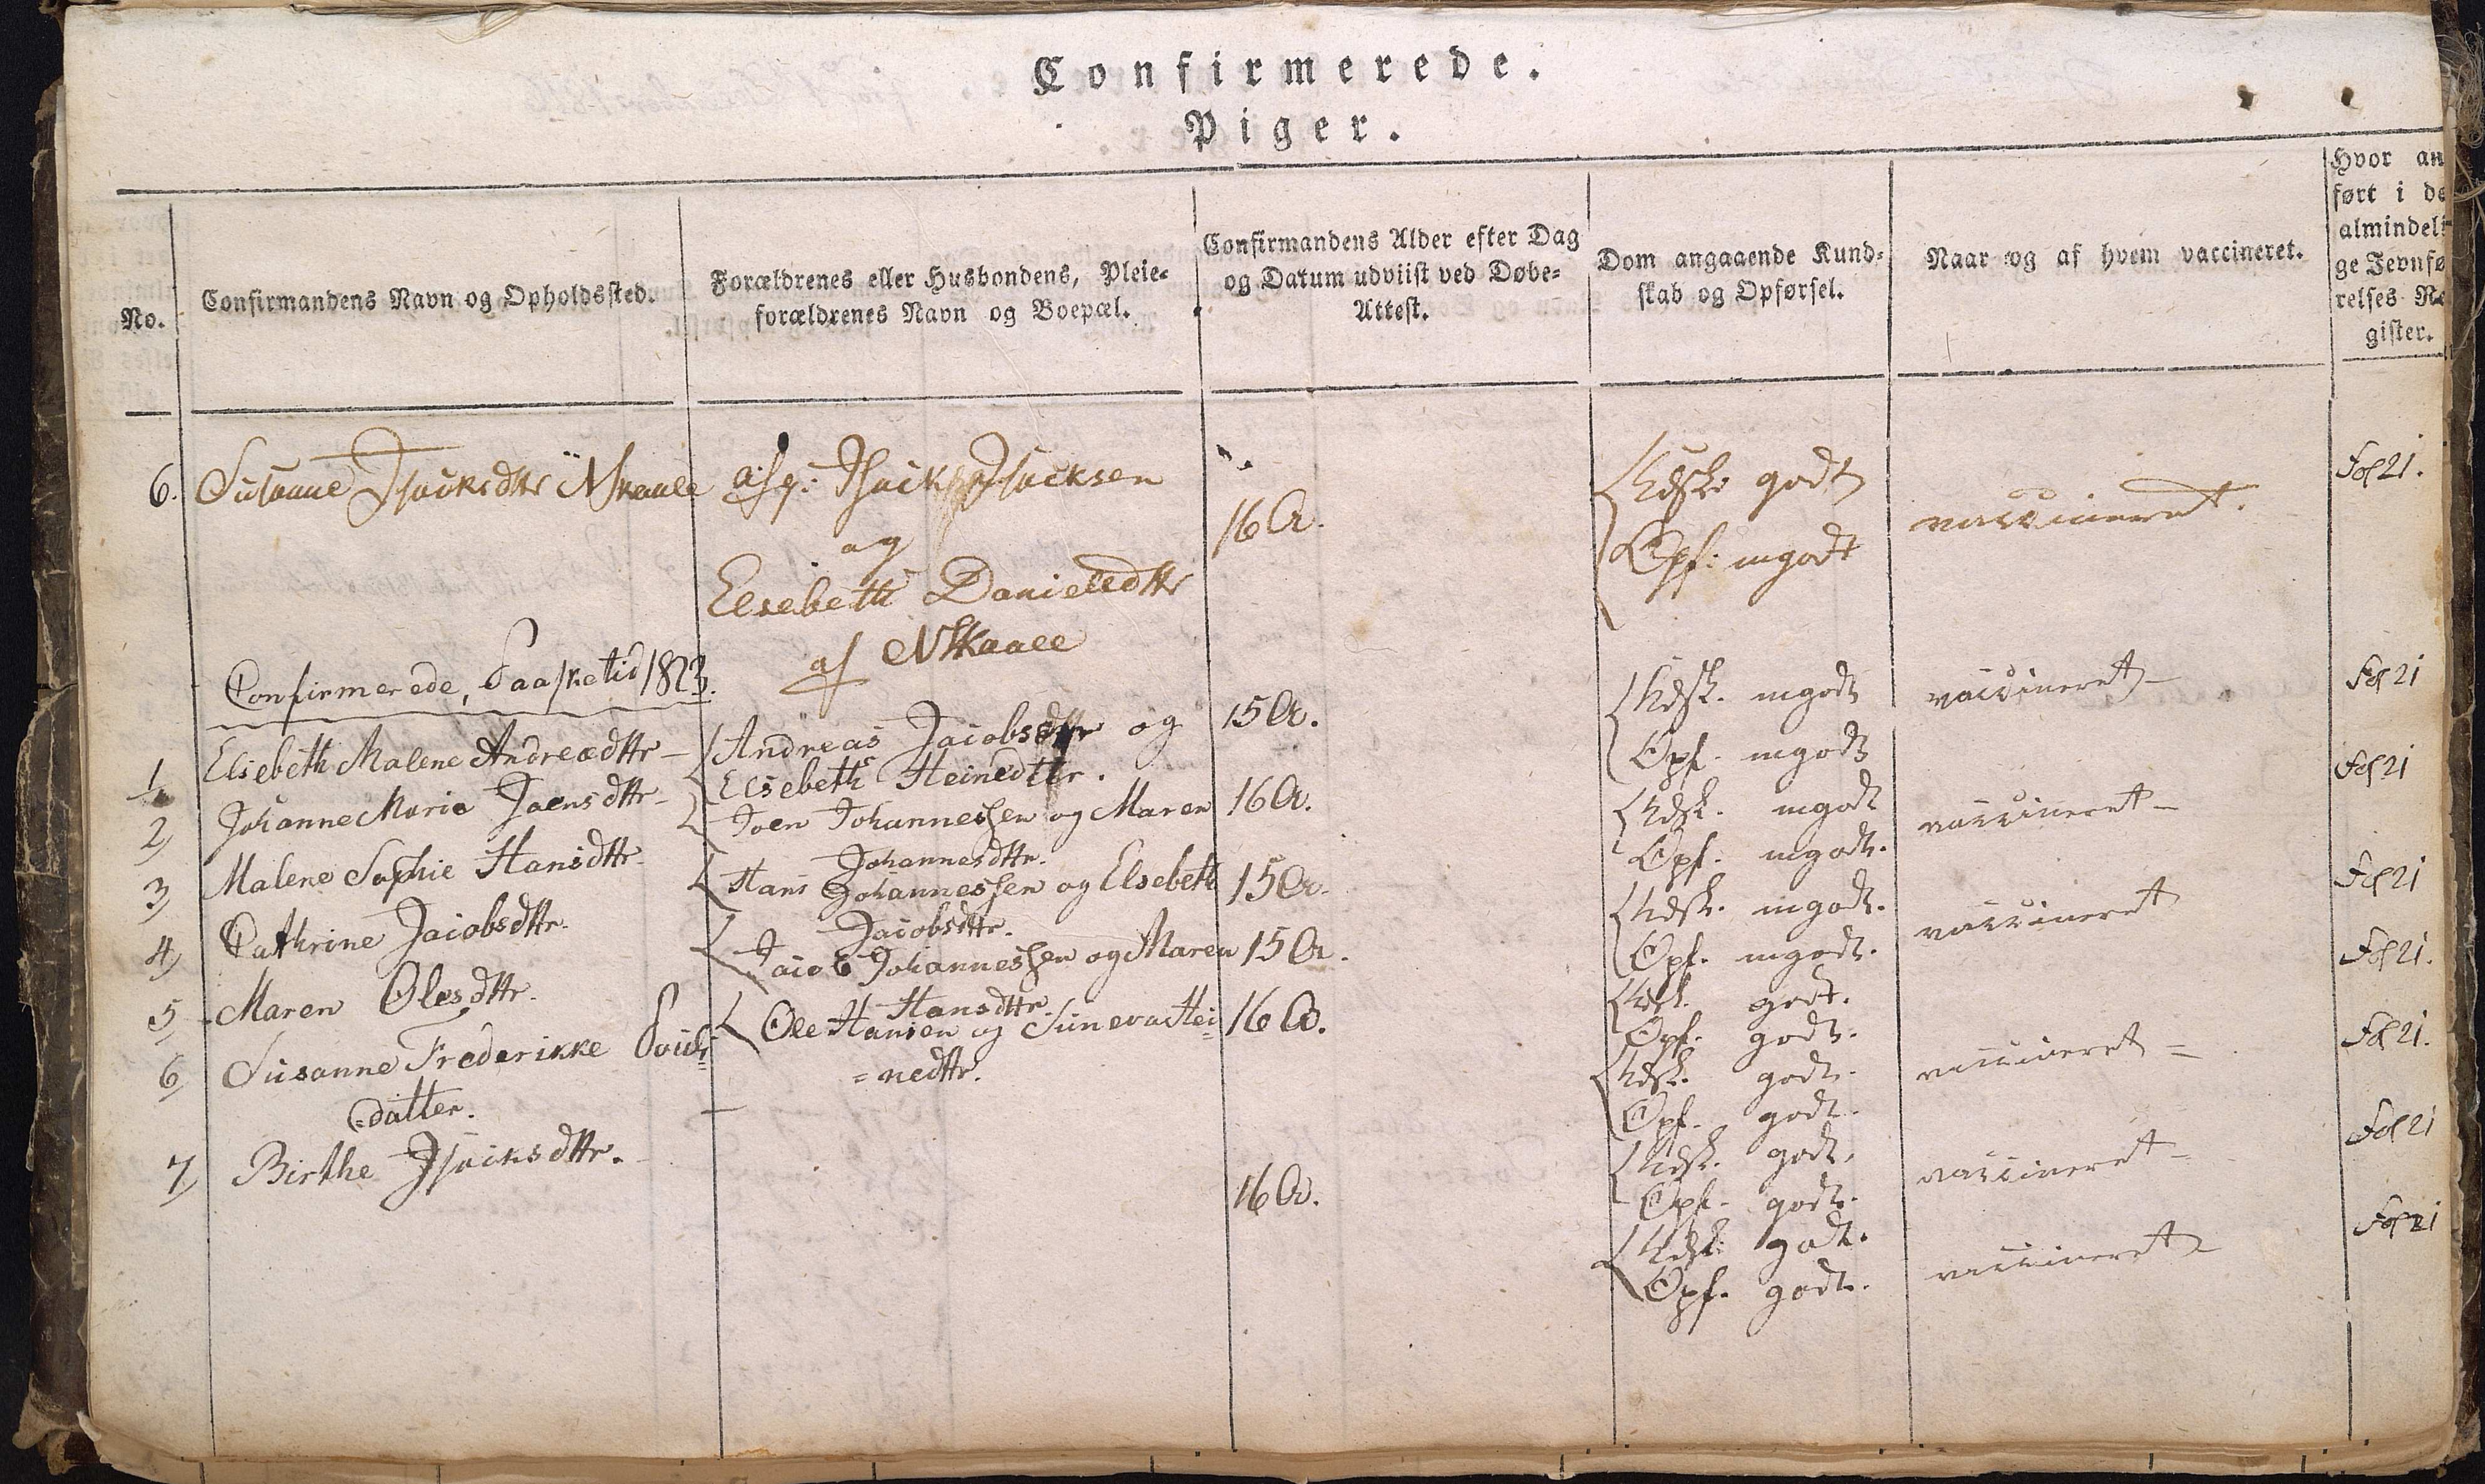 Confirmerede.
Piger.
No.
Confirmandens Navn og Opholdssted.
Forældrenes eller Husbondens, Pleie-
forældrenes Navn og Boepæl.
Confirmandens Alder efter Dag
og Datum udviist ved Døbe-
Attest.
Dom angaaende Kund-
skab og Opførsel.
Naar og af hvem vaccineret.
Hvor an
ført i de
almindeli
ge Jevnfø
relses Re
gister.
6. Susanne Isaksdttr i NSkaale
afg: Isack Isacksen
og
Elsebeth Danieledttr
af NSkaale
16 A.
Kdsk: godt
Opf: mgodt
vaccineret.
Fol 21.
Confirmerede, Paasketid 1823.
1, Elsebeth Malene Andreædttr -
Andreas Jacobsdttr og
Elsebeth Heinedttr.
15 A.
Kdsk. mgodt
Opf. mgodt
vaccineret -
Fol 21
2, Johanne Marie Joensdttr -
Joen Johannessen og Maren
Johannesdttr.
16 A.
Kdsk. mgodt
Opf. mgodt.
vaccineret -
Fol 21
3, Malene Sophie Hansdttr.
Hans Johannessen og Elsebeth
Jacobsdttr.
15 A.
Kdsk. mgodt.
Opf. mgodt.
vaccineret
Fol 21
4, Cathrine Jacobsdttr.
Jacob Johannessen og Maren
Hansdttr.
15 A.
Kdsk. godt.
Opf. godt.
Fol 21.
5, Maren Olesdttr.
Ole Hansen og Suneva Hei=
=nedttr.
16 A.
Kdsk. godt.
Opf. godt.
vaccineret =
Fol 21.
6, Susanne Frederikke Pouls=
=datter.
-
Kdsk. godt.
Opf. godt.
vaccineret -
Fol 21
7, Birthe Isaksdttr.
16 A.
Kdsk: godt.
Opf. godt.
vaccineret
Fol 21